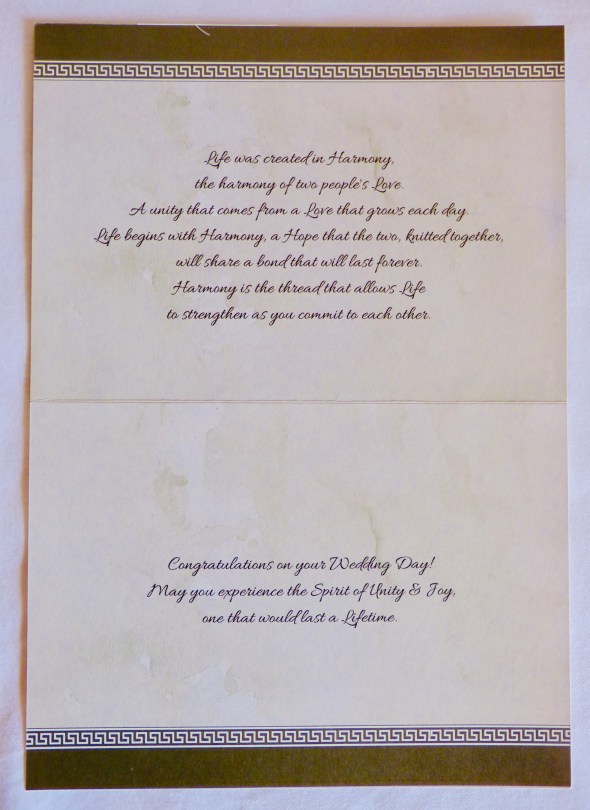 Life was created in Harmony,
the harmony of two people's Love.
A unity that comes from a Love that grows each day.
Life begins with Harmony, a Hope that the two, knitted together,
will share a bond that will last forever.
Harmony is the thread that allows Life
to strengthen as you commit to each other.
Congratulations on your Wedding Day!
May you experience the Spirit of Unity & Joy,
one that would last a Lifetime.